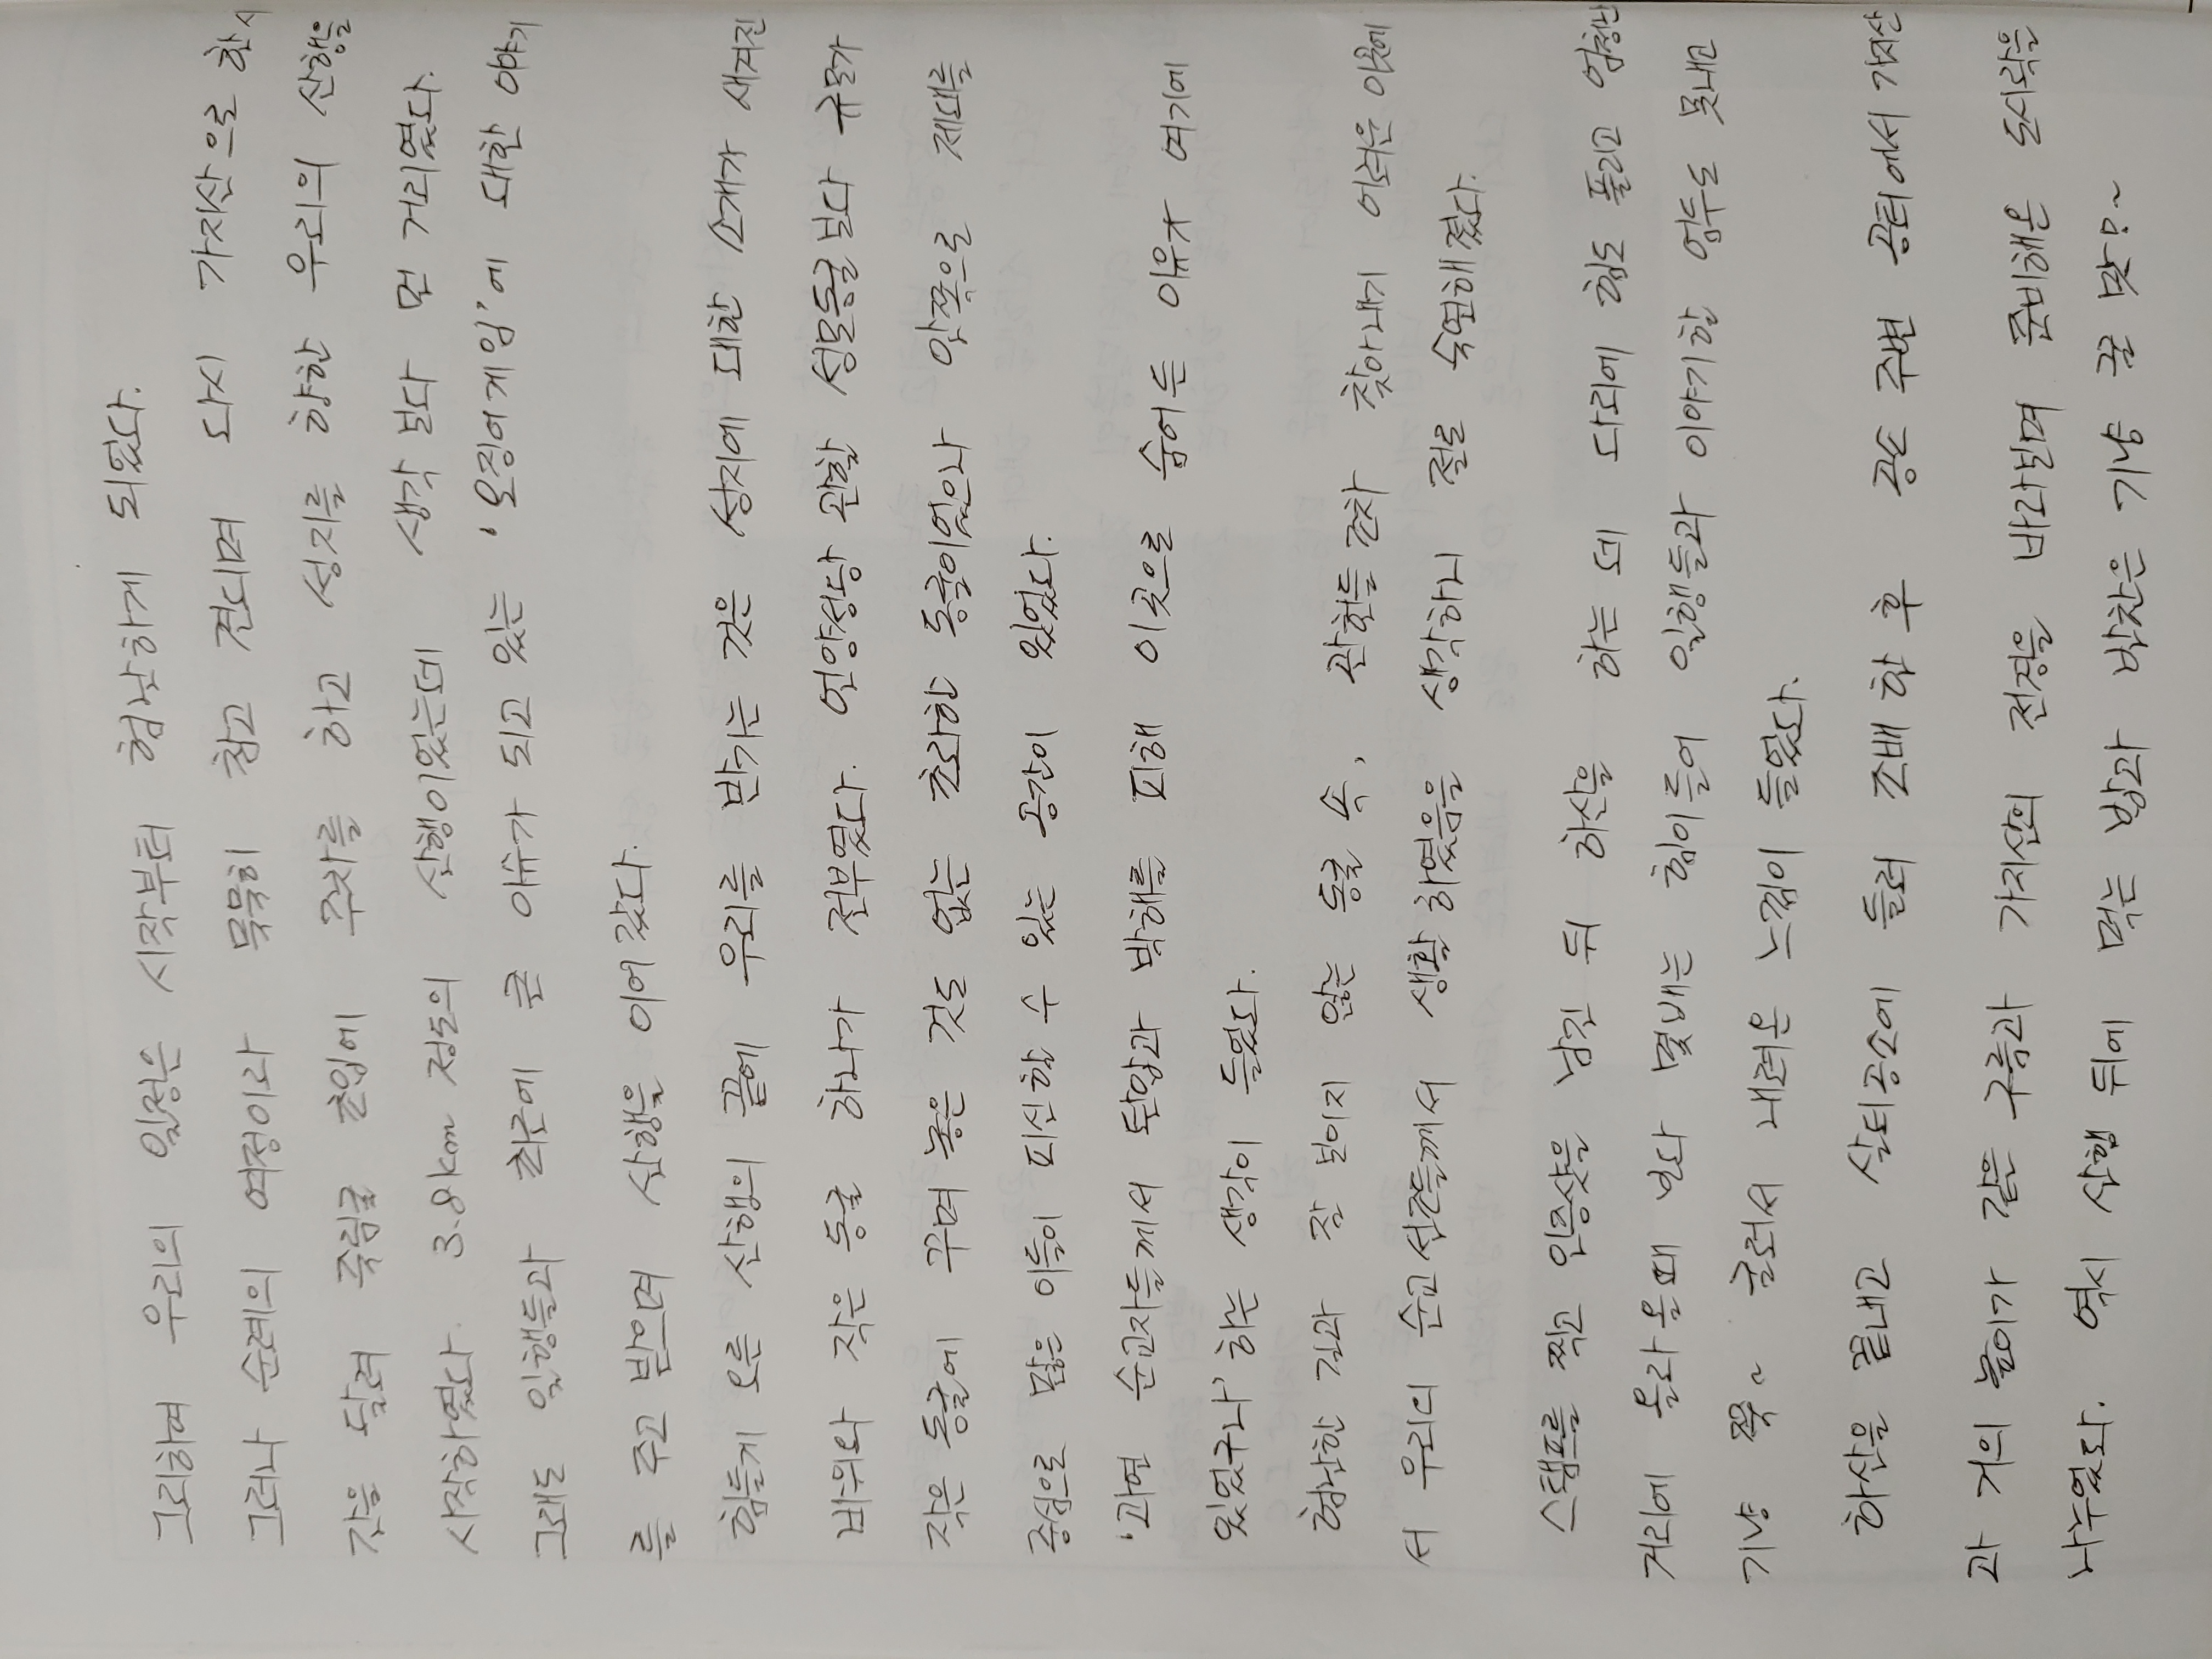 그리하여 우리의 일정은 시작부터 험난하게 되었다.
그러나 순례의 여정이라 묵묵히 참고 견디며 다시 가지산으로 한시
간을 달려 죽림굴 초입에 주차를 하고 성지를 향한 우리의 산행을
시작하였다. 3.8km 정도의 산행이었는데 생각 보다 먼 거리였다.
그래도 일행들과 최근에 큰 이슈가 되고 있는 '오징어게임'에 대한 이야기
를 주고 받으며 산행을 이어갔다.
힘들게 오른 산행의 끝에 우리를 반기는 것은 성지에 대한 소개가 새겨진
바위와 작은 동굴 하나가 전부였다. 언양성당 관할 성모동굴보다 규모가
작은 동굴에 꾸며 놓은 것도 없는 초라한 동굴이었으나 안쪽으로 제대를
중심으로 많은 이들이 피신할 수 있는 공간이 있었다.
'과연 순교자들께서 탄압과 박해를 피해 이곳으로 숨어든 이유가 여기에
있었구나' 하는 생각이 들었다.
험난한 길과 잘 보이지 않는 동굴 속, 관헌들조차 찾아내기 어려운 이곳에
서 우리의 순교선조들께서 생활하였음을 생각하니 절로 숙연해졌다.
스탬프를 찍고 인증샷을 남긴 뒤 하산을 하는 데 다리에 힘도 풀리고 엄청난
거리에 올라올때 보다 몇배는 힘이들어 일행들과 이야기할 엄두도 못내고
기냥 쭉~ 굴러서 내려온 느낌이 들었다.
하산을 끝내고 살티공소에 들러 조배 한 후 공소 주변 공터에서 가지산
과 거의 높이가 같은 구름과 가지산의 전경을 바라보며 준비해온 도시락을
나누었다. 역시 산행 뒤에 먹는 밥과 반찬은 기냥 꿀 맛!~